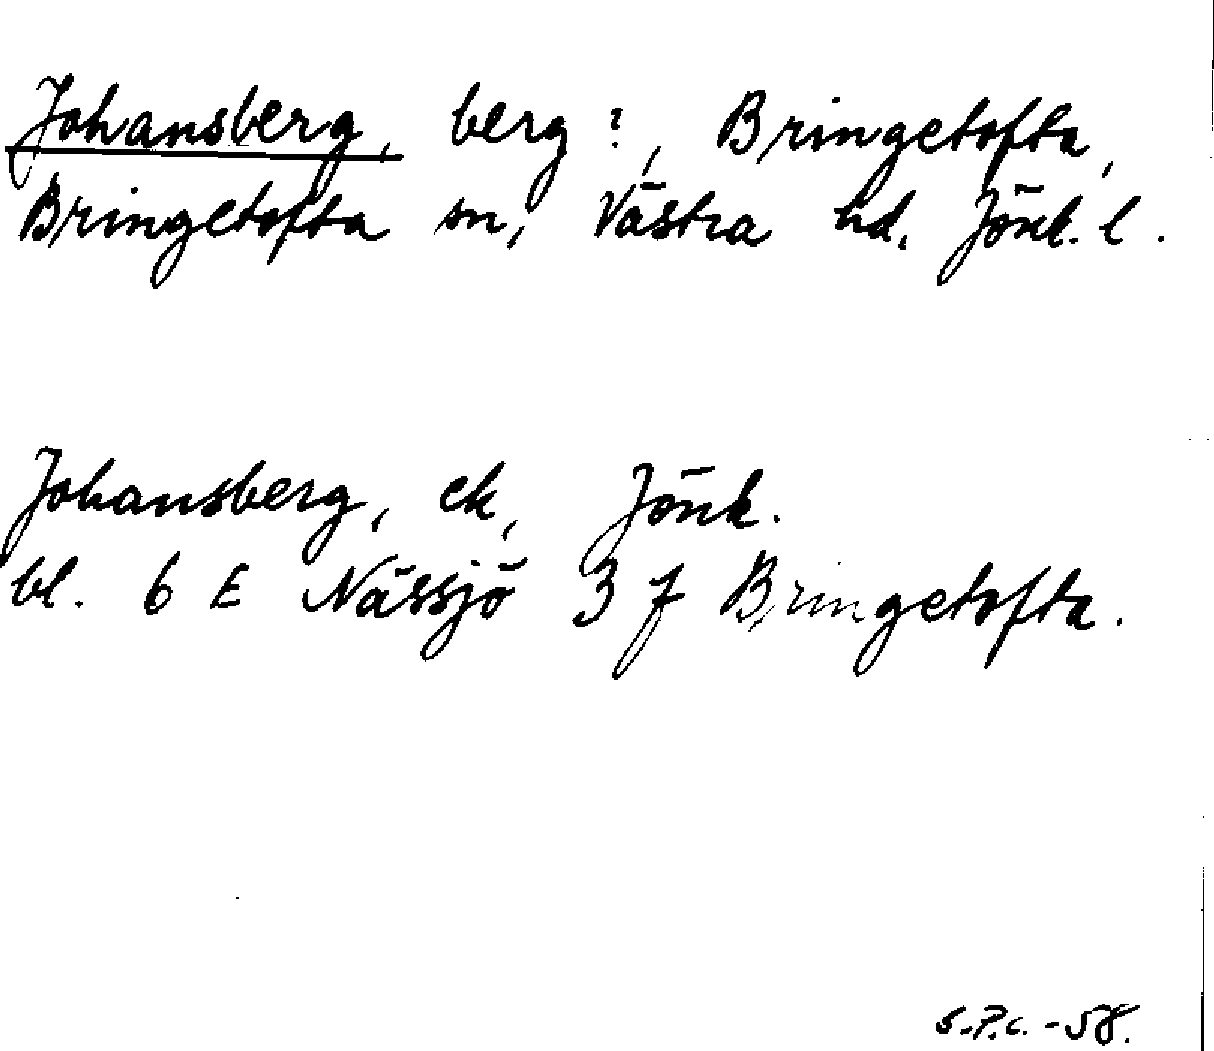 Johansberg, berg?, Bringetofta,
Bringetofta sn, Västra hd, Jönk. l.
Johansberg, ek, Jönk.
bl. 6 E Nässjö 3 f Bringetofta.
S.P.C. -58.